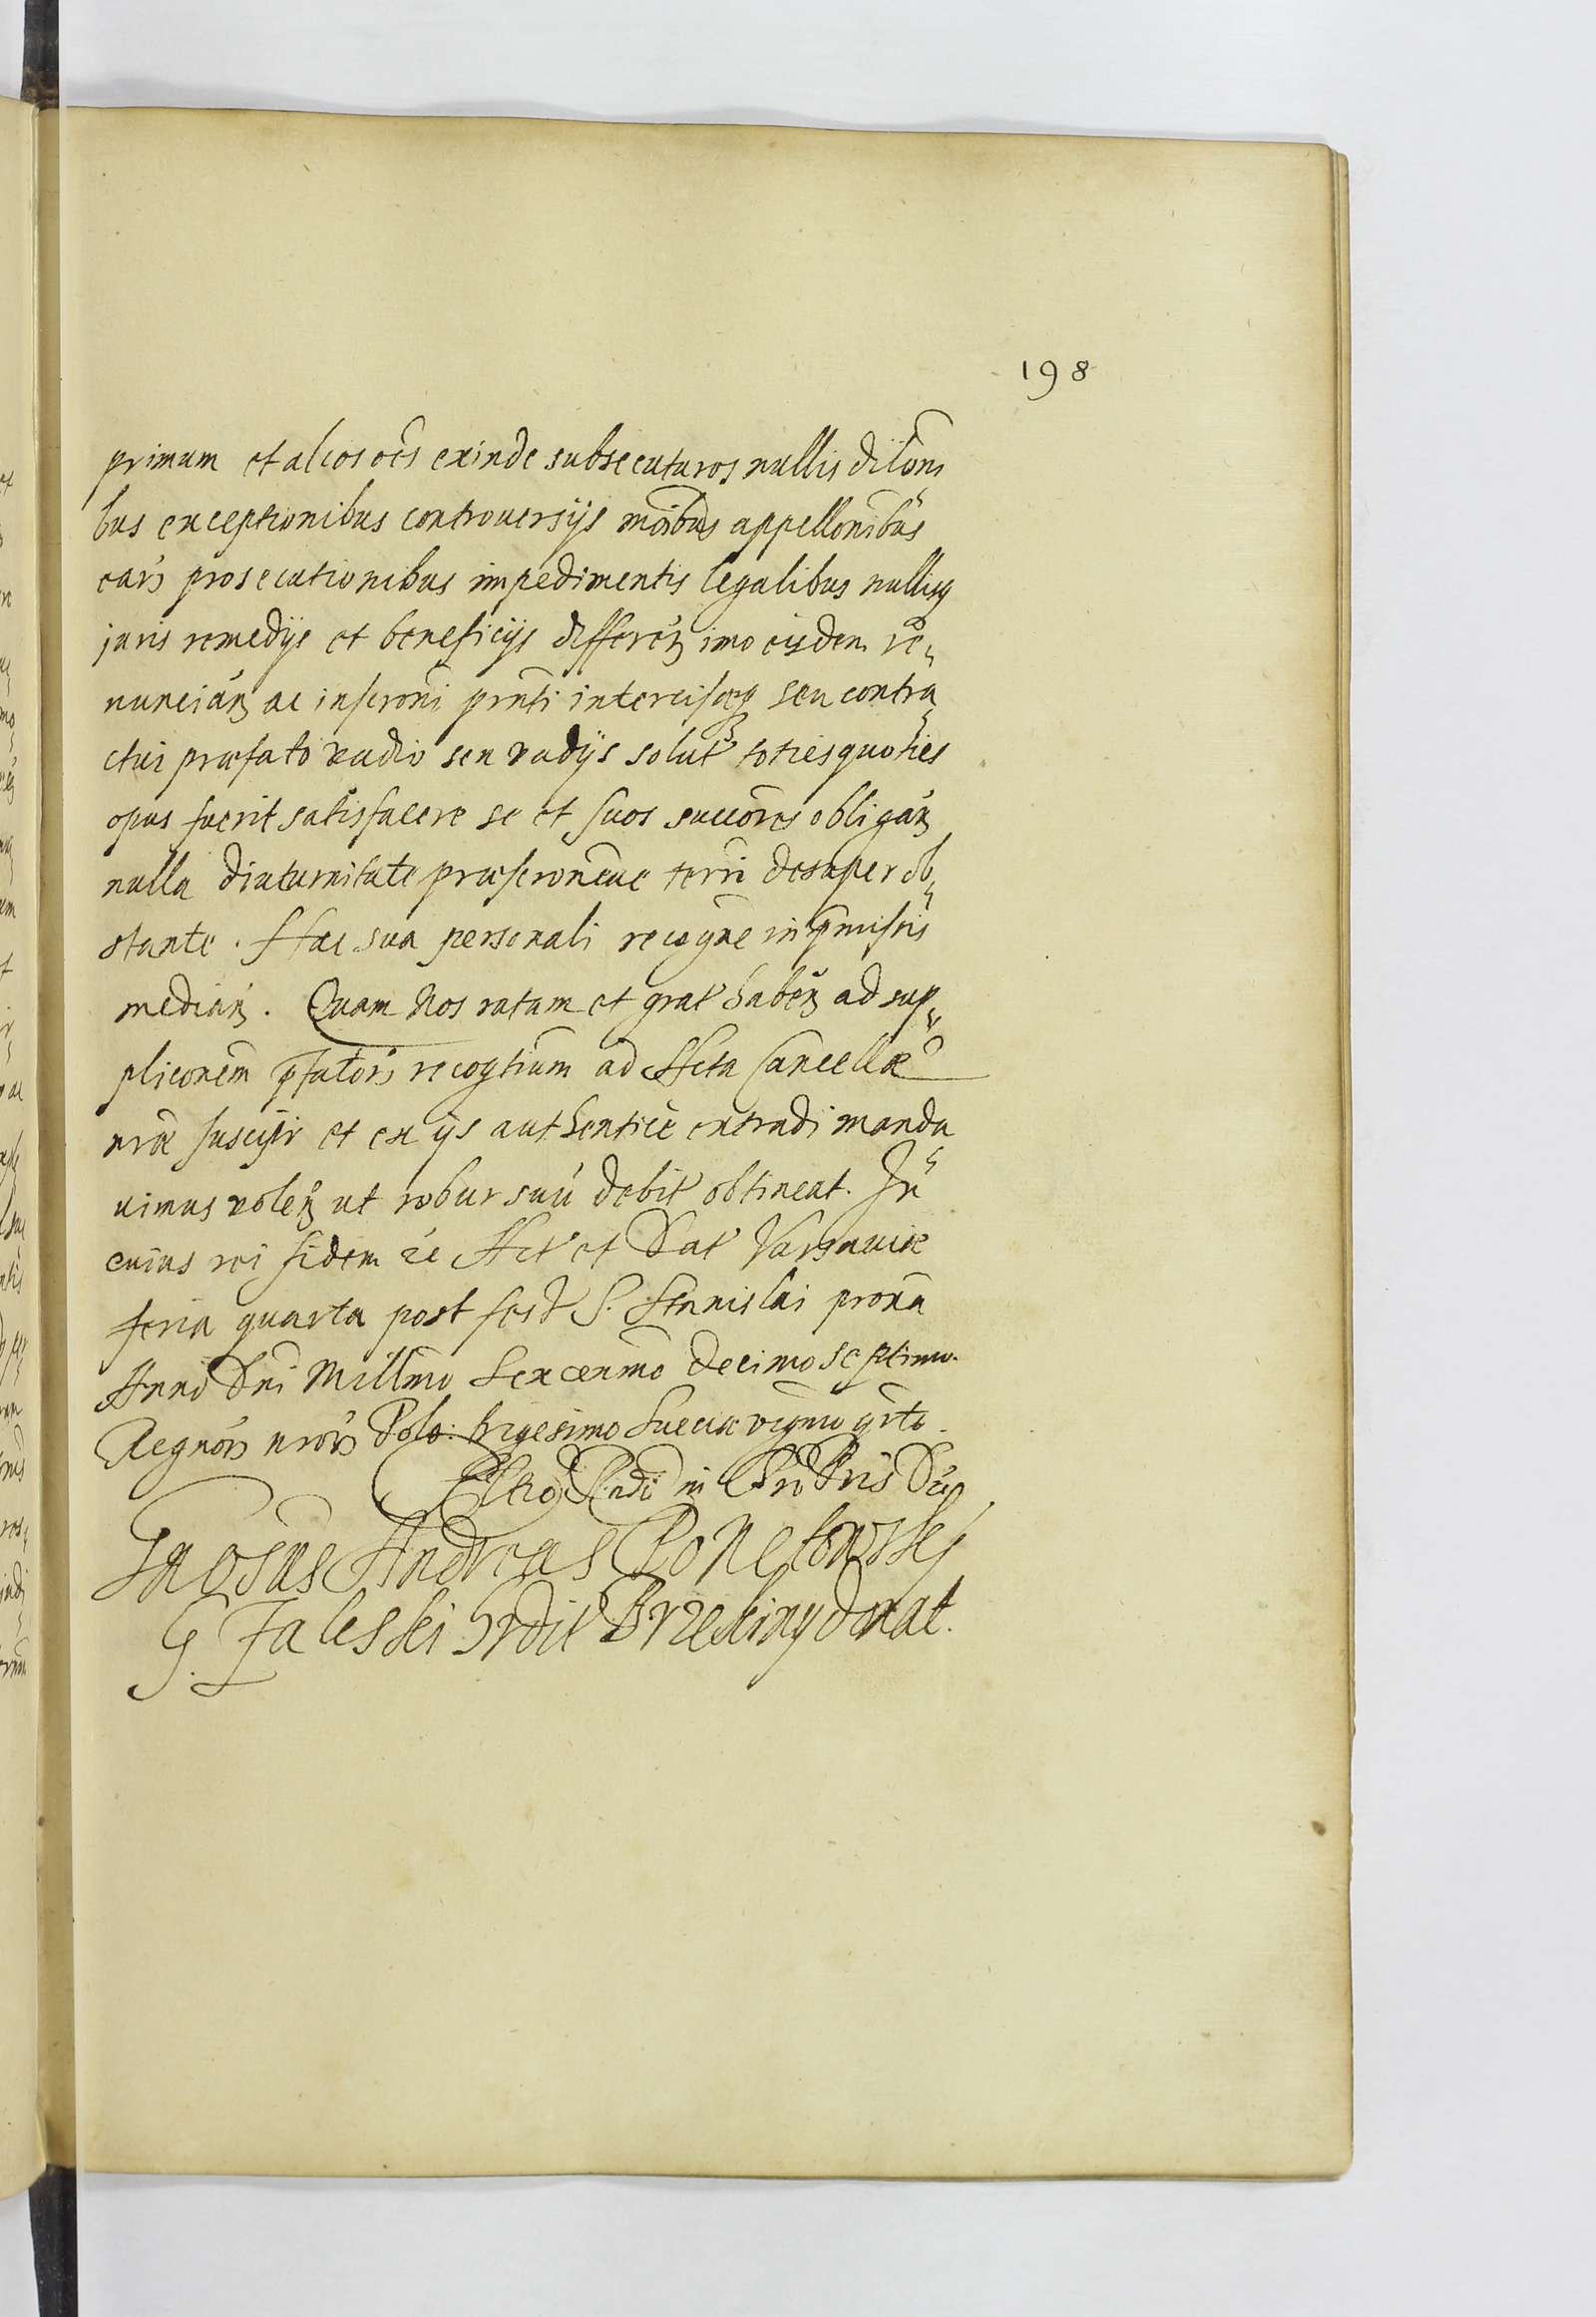 198
primum et alios oēs exinde subsecuturos nullis dilōni
bus exceptionibus controuersijs mōibus appellōnibus
earū prosecutionibus impedimentis legalibus nullisq
juris remedijs et beneficijs differēn imo eisdem re„
nunciān ac inscrōni pn̄ti intercisæq seu contra„
ctui præfato vadio seu vadijs solut toties quoties
opus fuerit satisfacere se et suos succōres obligān
nulla diuturnitate præscrōneue terrī desuper ob„
stante. Hac sua personali recogne in pmissis
median. Quam Nos ratam et grat habēn ad sup„
pliconēm pfatorū recogtium ad Acta Cancellæ
nr̄æ suscipi et ex ijs authenticè extradi manda„
uimus volēn ut robur suū debit obtineat. In
cuius rei fidem &c Act et Dat Varsauiæ
feria quarta post fest S. Stanislai pronā
Anno Dn̄i Millm̄o Sexcenm̄o decimo septimo.
Regnorū nrorū Polo: trigesimo Sueciæ vigm̄o qrto.
Andreas
G. Zalesski Brzeziny donat.